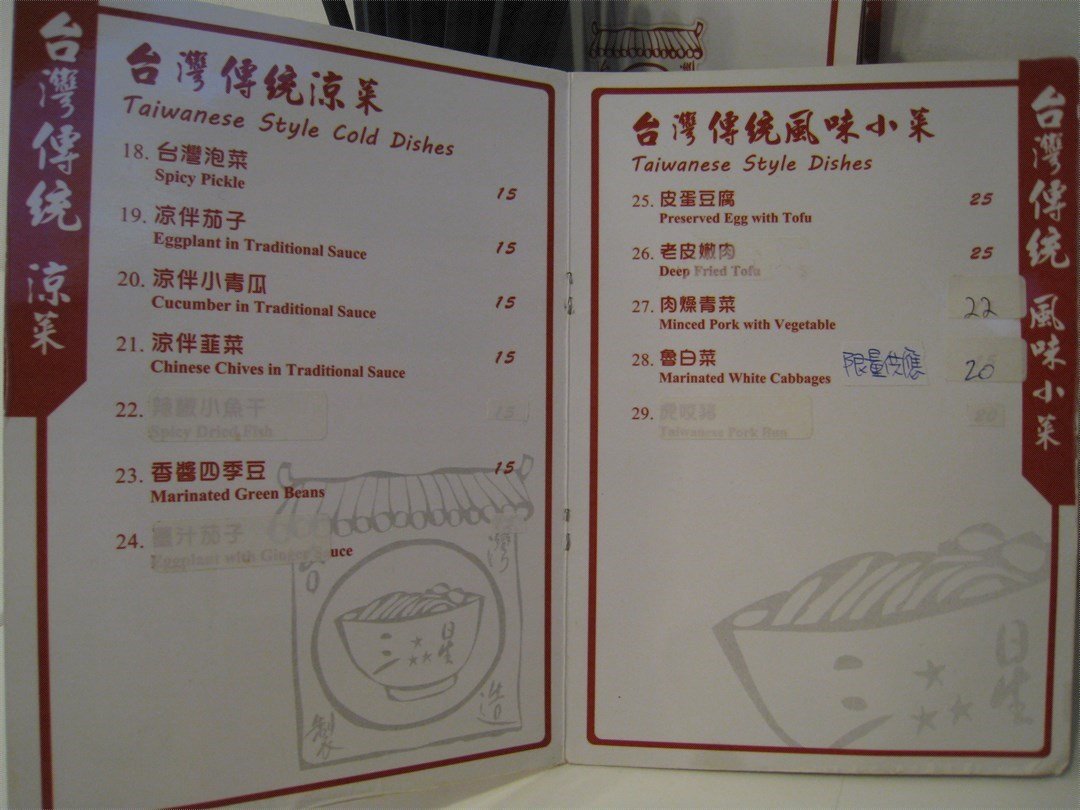 台灣傳統 涼菜
台灣傳統涼菜
Taiwanese Style Cold Dishes
18. 台灣泡菜
Spicy Pickle 15
19. 凉伴茄子
Eggplant in Traditional Sauce 15
20. 涼伴小青瓜
Cucumber in Traditional Sauce 15
21. 涼伴韮菜
Chinese Chives in Traditional Sauce 15
22. 辣椒小魚干 15
Spicy Dried Fish
23. 香醬四季豆 15
Marinated Green Beans
24. 薑汁茄子
Eggplant with Ginger Sauce
台灣
三星
製造
台灣傳統風味小菜
Taiwanese Style Dishes
25. 皮蛋豆腐 25
Preserved Egg with Tofu
26. 老皮嫩肉 25
Deep Fried Tofu
27. 肉燥青菜 22
Minced Pork with Vegetable
28. 魯白菜 限量供應 20
Marinated White Cabbages
29. 虎咬豬 20
Taiwanese Pork Bun
三星
台灣傳統 風味小菜